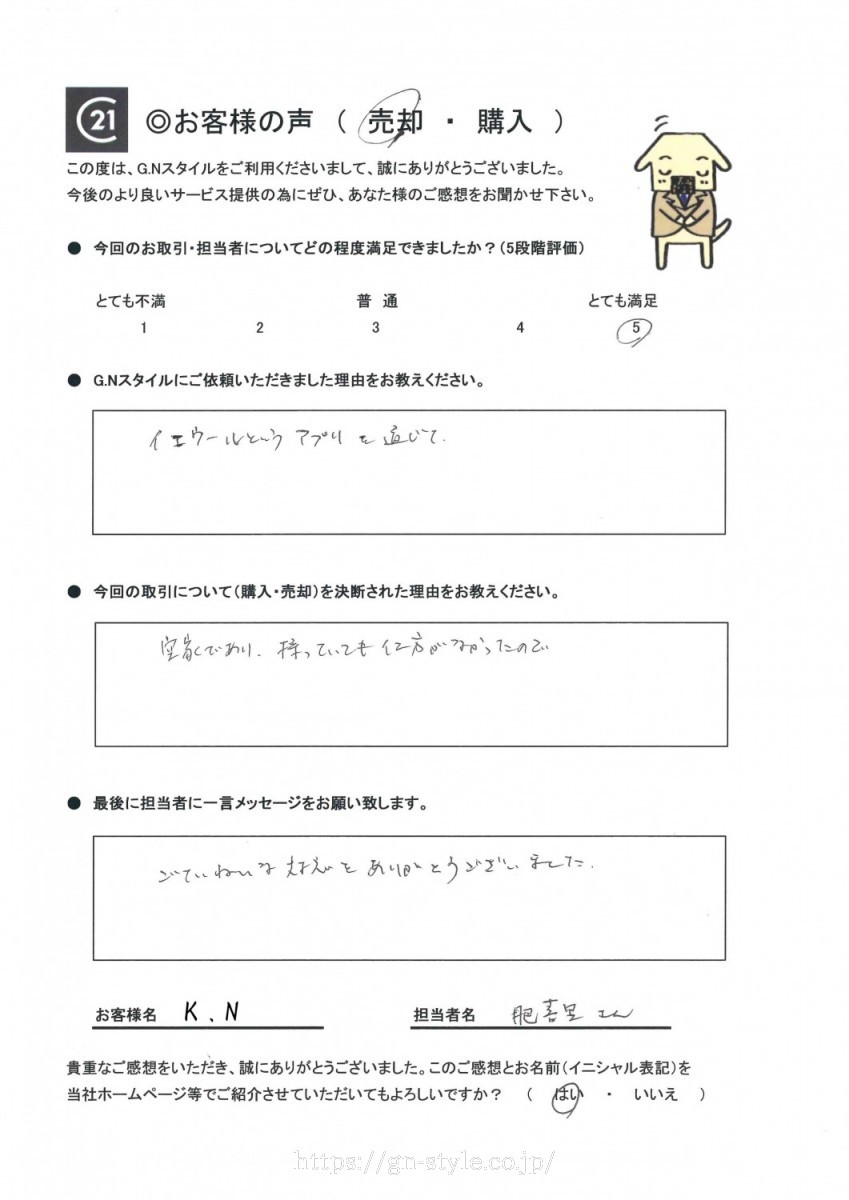 C21
◎お客様の声 （ 売却 ・ 購入 ）
この度は、G.Nスタイルをご利用くださいまして、誠にありがとうございました。
今後のより良いサービス提供の為にぜひ、あなた様のご感想をお聞かせ下さい。
● 今回のお取引・担当者についてどの程度満足できましたか？（5段階評価）
とても不満 普 通 とても満足
1 2 3 4 5
● G.Nスタイルにご依頼いただきました理由をお教えください。
イエウールという アプリ を 通じて.
● 今回の取引について（購入・売却）を決断された理由をお教えください。
空家であり. 持っていても 仕方がなかったので
● 最後に担当者に一言メッセージをお願い致します。
ごていねいな 対応を ありがとうございました.
お客様名 K.N 担当者名 肥喜里 さん
貴重なご感想をいただき、誠にありがとうございました。このご感想とお名前（イニシャル表記）を
当社ホームページ等でご紹介させていただいてもよろしいですか？ （ はい ・ いいえ ）
https://gn-style.co.jp/